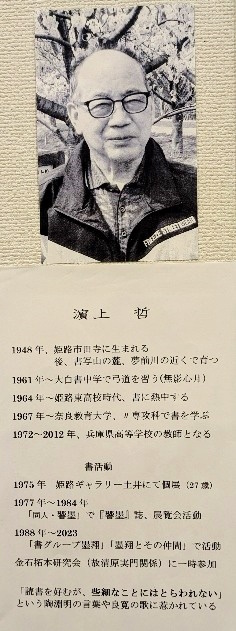 FREEZE STREETGEAR
濵上 哲
1948年、姫路市田寺に生まれる
後、書写山の麓、夢前川の近くで育つ
1961年〜大白書中学で弓道を習う(無影心月)
1964年〜姫路東高校時代、書に熱中する
1967年〜奈良教育大学、〃専攻科で書を学ぶ
1972〜2012年、兵庫県高等学校の教師となる
書活動
1975年 姫路ギャラリー土井にて個展(27歳)
1977年〜1984年
「同人・饗墨」で『饗墨』誌、展覧会活動
1988年〜2023
「書グループ墨翔」「墨翔とその仲間」で活動
金石拓本研究会(故清原実門関係)に一時参加
「読書を好むが、些細なことにはとらわれない」
という陶淵明の言葉や良寛の歌に惹かれている